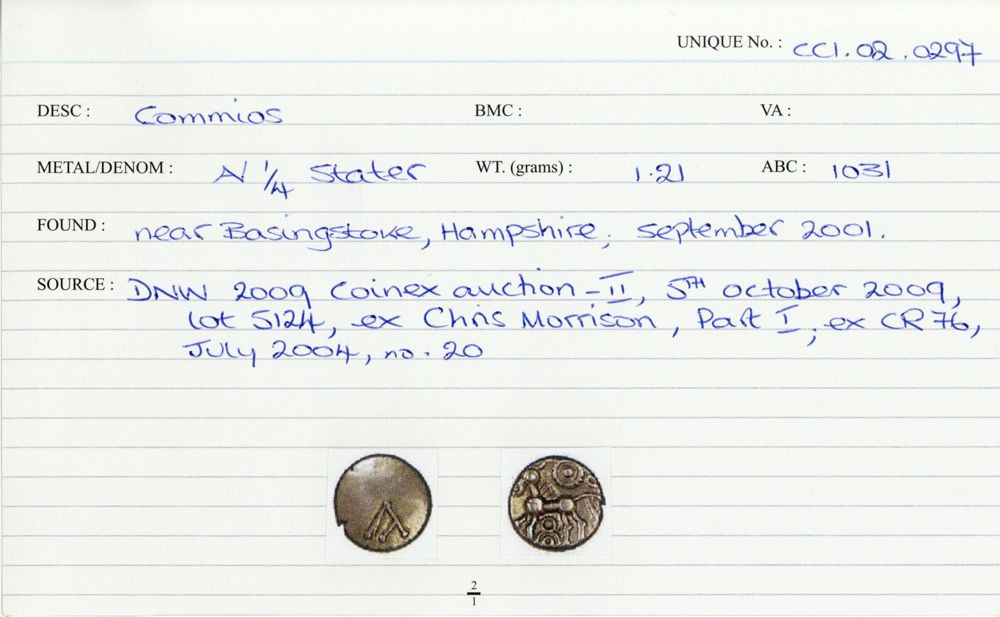 UNIQUE No. : CCI.02.0297
DESC : Commios BMC : VA :
METAL/DENOM : AV 1/4 Stater WT. (grams) : 1.21 ABC : 1031
FOUND : near Basingstoke, Hampshire, September 2001.
SOURCE : DNW 2009 Coinex auction - II, 5TH October 2009,
lot 5124, ex Chris Morrison, Part I, ex CR 76,
July 2004, no. 20
2
1